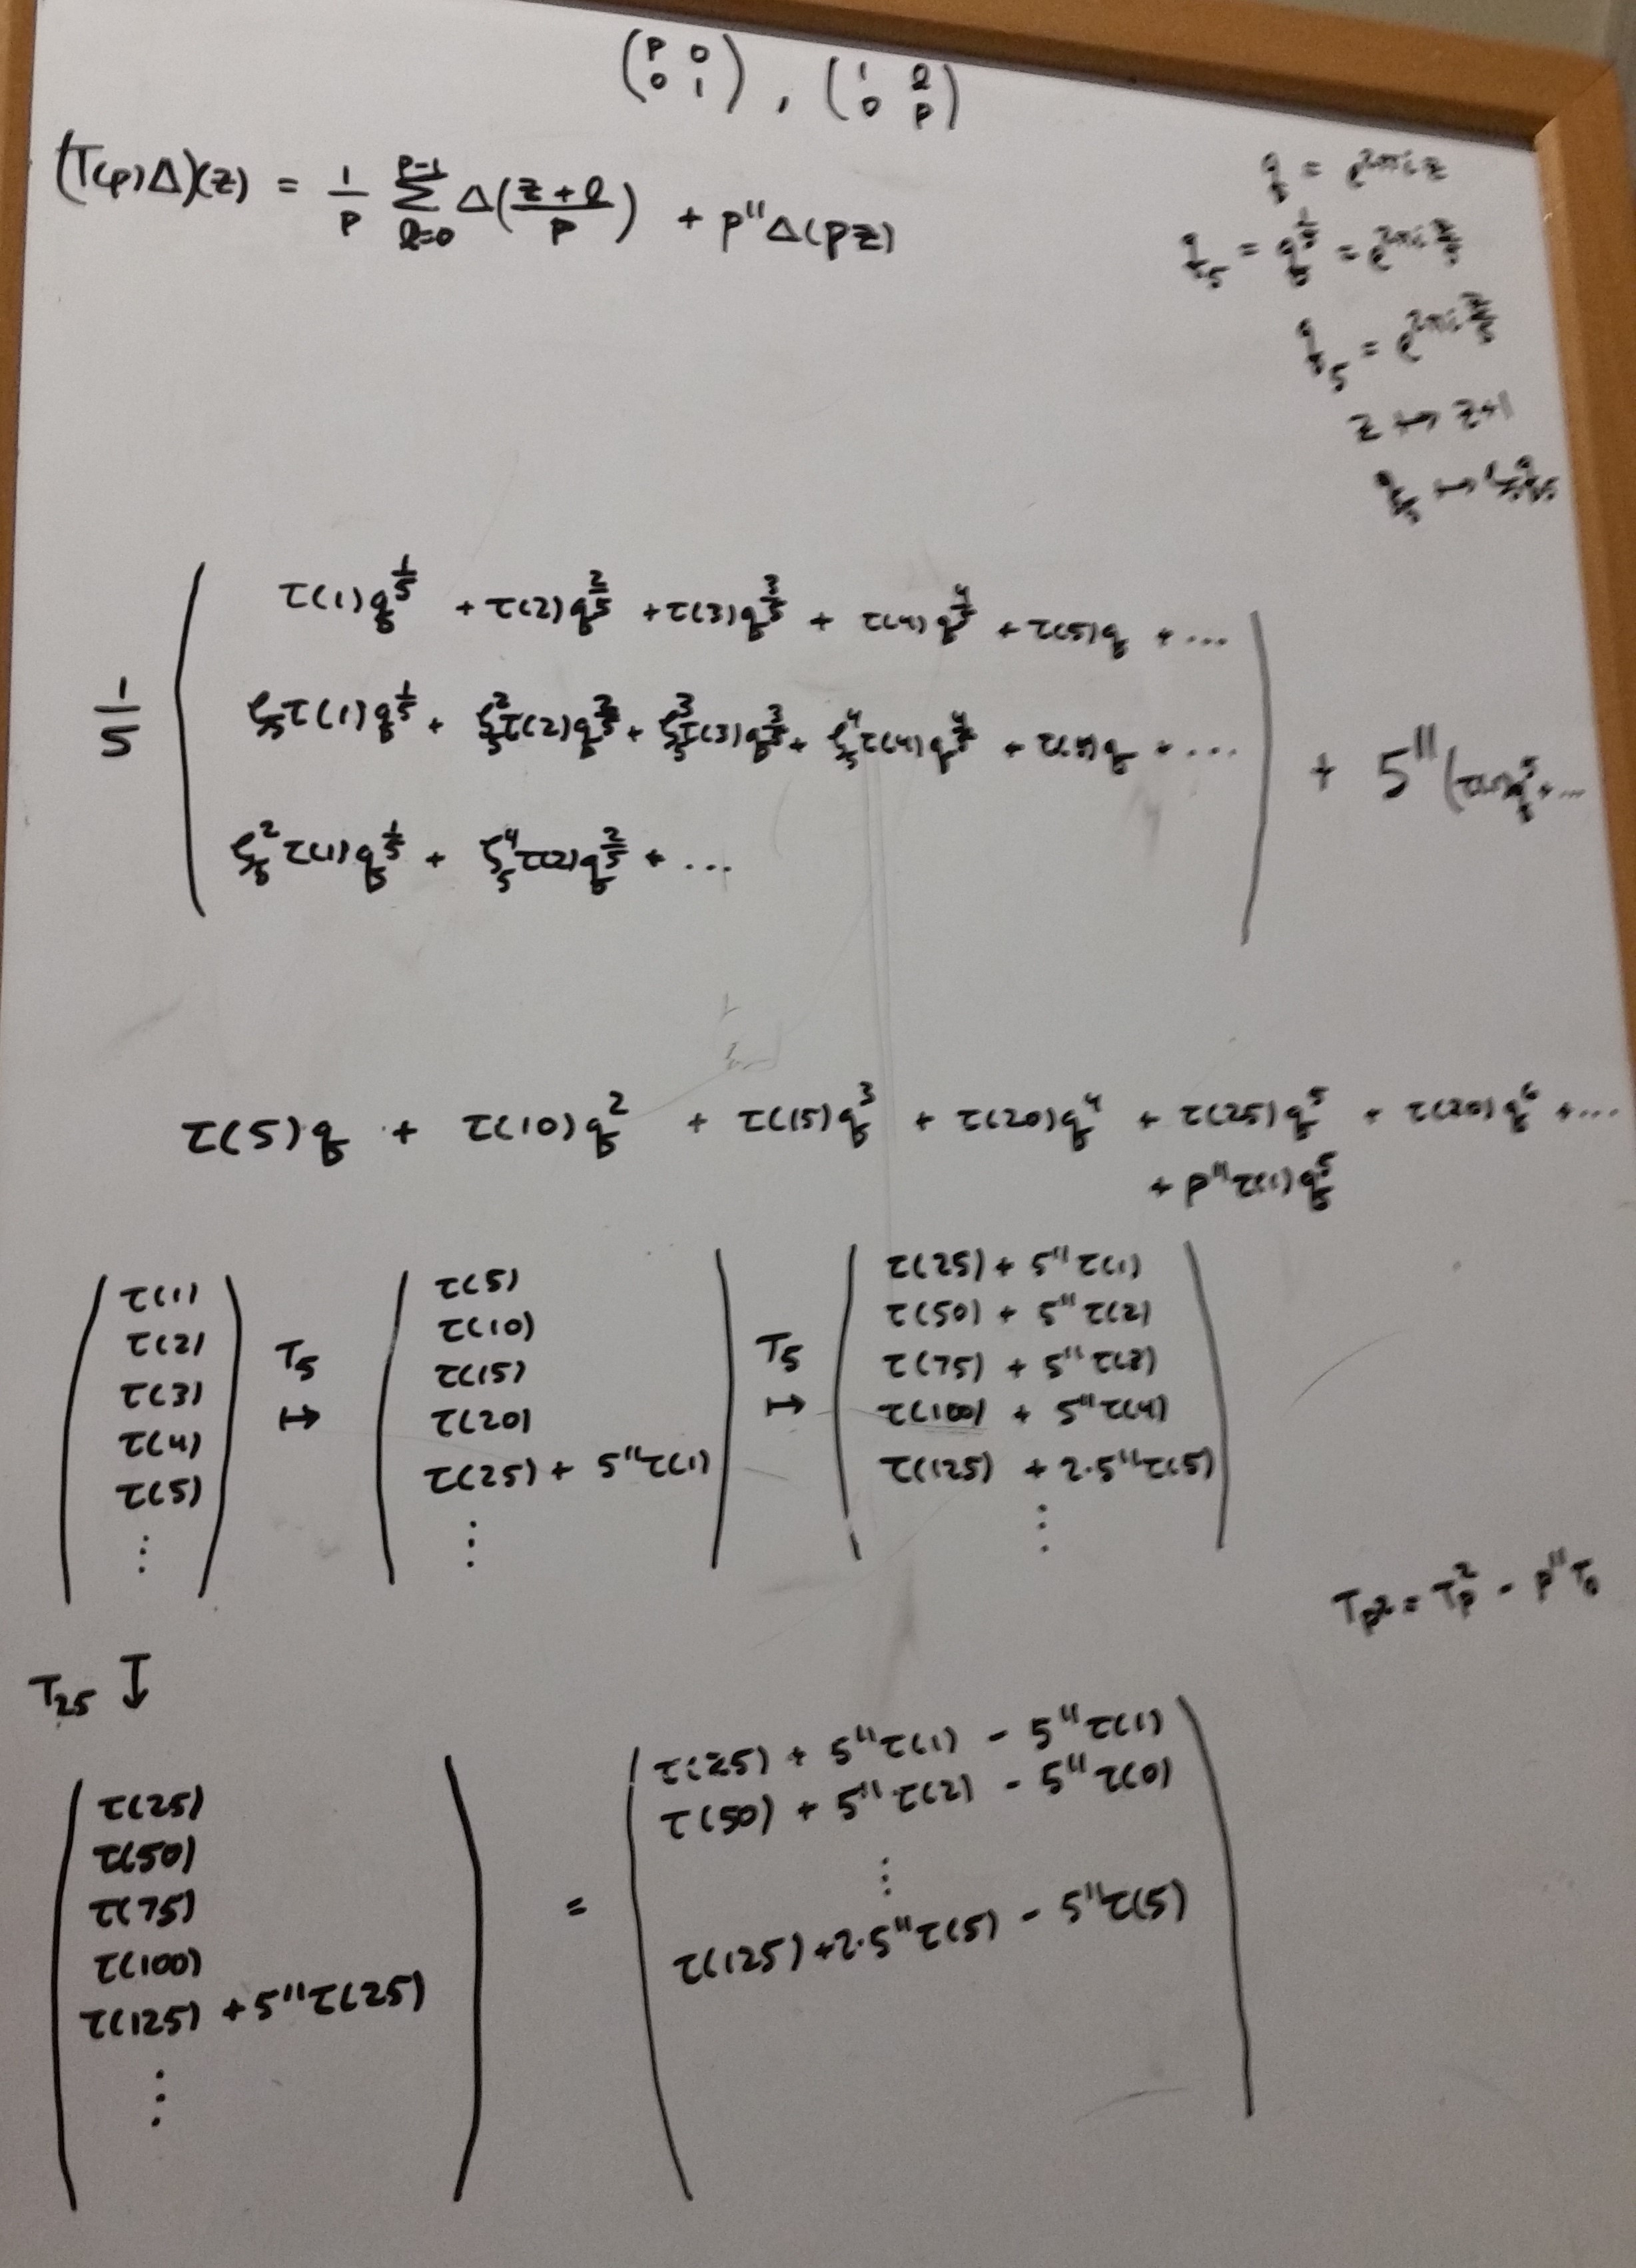 (p 0
0 1), (1 l
0 p)
(T(p)Δ)(z) = 1/p Σ_{l=0}^{p-1} Δ((z+l)/p) + p^11 Δ(pz)
q = e^{2πiz}
q_5 = q^{1/5} = e^{2πi z/5}
q_5 = e^{2πi z/5}
z ↦ z+1
q_5 ↦ ζ_5 q_5
τ(1)q^{1/5} + τ(2)q^{2/5} + τ(3)q^{3/5} + τ(4)q^{4/5} + τ(5)q + ...
1/5 ( ζ_5 τ(1)q^{1/5} + ζ_5^2 τ(2)q^{2/5} + ζ_5^3 τ(3)q^{3/5} + ζ_5^4 τ(4)q^{4/5} + τ(5)q + ... ) + 5^11 (τ(1)q^5 + ...
ζ_5^2 τ(1)q^{1/5} + ζ_5^4 τ(2)q^{2/5} + ...
τ(5)q + τ(10)q^2 + τ(15)q^3 + τ(20)q^4 + τ(25)q^5 + τ(20)q^6 + ...
+ p^11 τ(1)q^5
τ(1)
τ(2)
τ(3)
τ(4)
τ(5)
⋮
T_5
↦
τ(5)
τ(10)
τ(15)
τ(20)
τ(25) + 5^11 τ(1)
⋮
T_5
↦
τ(25) + 5^11 τ(1)
τ(50) + 5^11 τ(2)
τ(75) + 5^11 τ(3)
τ(100) + 5^11 τ(4)
τ(125) + 2·5^11 τ(5)
⋮
T_{p^2} = T_p^2 - p^11 T_0
T_25 ↧
τ(25)
τ(50)
τ(75)
τ(100)
τ(125) + 5^11 τ(25)
⋮
=
τ(25) + 5^11 τ(1) - 5^11 τ(1)
τ(50) + 5^11 τ(2) - 5^11 τ(0)
⋮
τ(125) + 2·5^11 τ(5) - 5^11 τ(5)